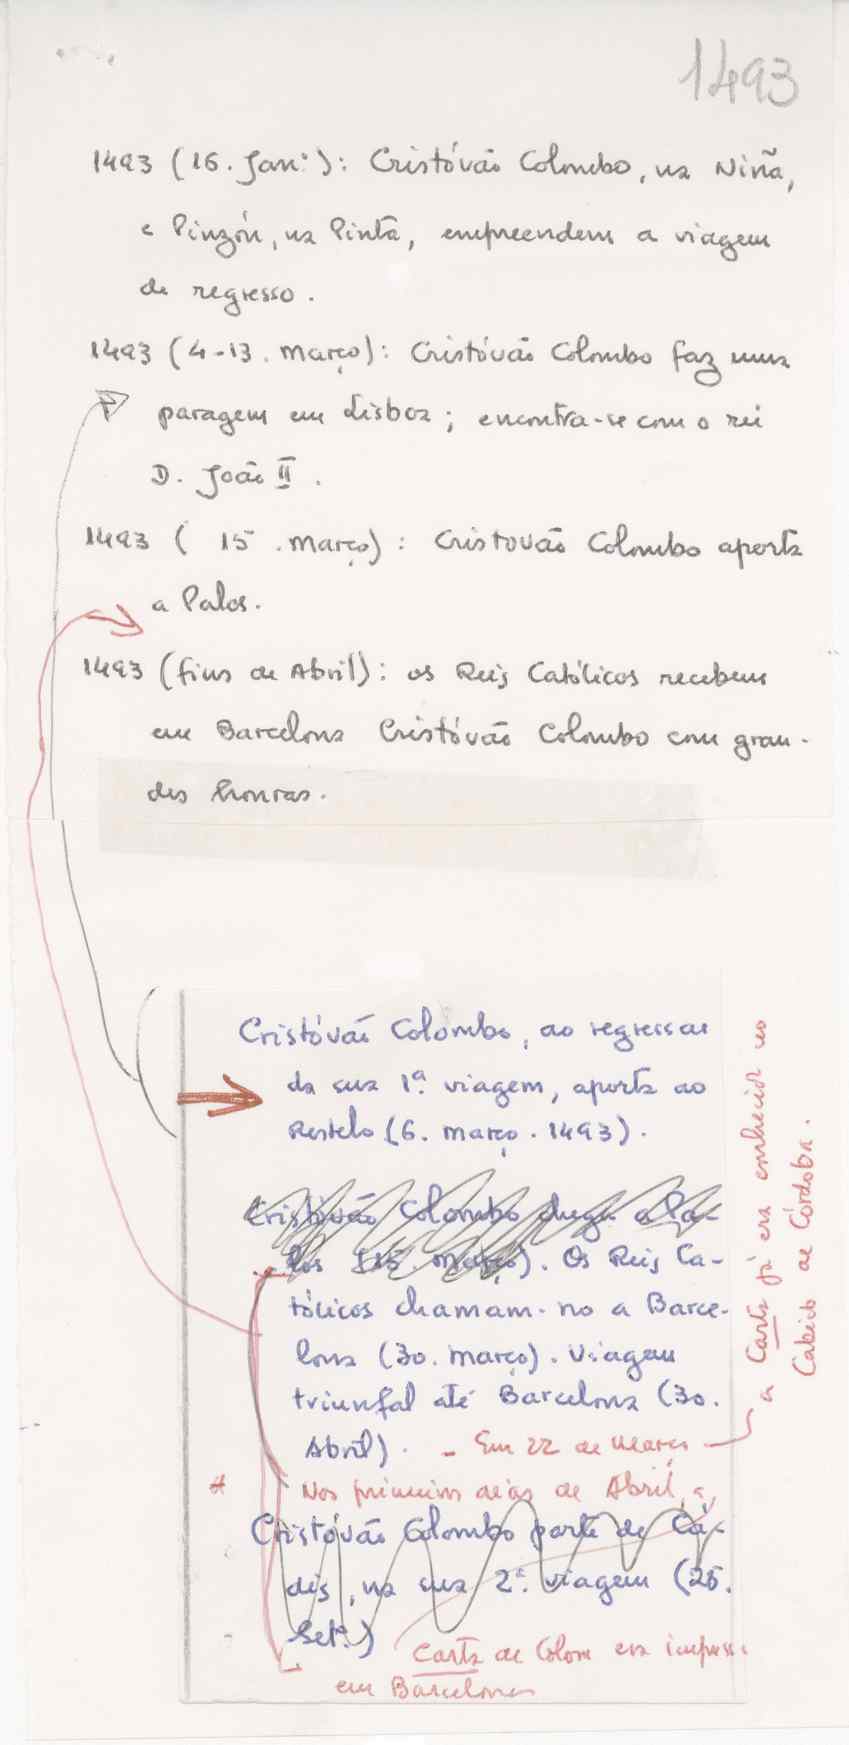 1493
1493 (16. Jan.º): Cristóvão Colombo, na Niña,
e Pinzón, na Pinta, empreendem a viagem
de regresso.
1493 (4-13. março): Cristóvão Colombo faz uma
paragem em Lisboa; encontra-se com o rei
D. João II.
1493 ( 15 . março): Cristovão Colombo aporta
a Palos.
1493 (fins de Abril): os Reis Católicos recebem
em Barcelona Cristóvão Colombo com gran-
des honras.
Cristóvão Colombo, ao regressar
da sua 1ª. viagem, aporta ao
Restelo (6. março. 1493).
Cristóvão Colombo chega a Pa-
los (15. março). Os Reis Ca-
tólicos chamam-no a Barce-
lona (30. março). Viagem
triunfal até Barcelona (30.
Abril). - Em 22 de Março
a Carta já era conhecida no
Cabido de Córdoba.
Nos primeiros dias de Abril, a
Cristóvão Colombo parte de Cá-
dis, na sua 2ª. viagem (25.
Set.º)
Carta de Colom era impressa
em Barcelona